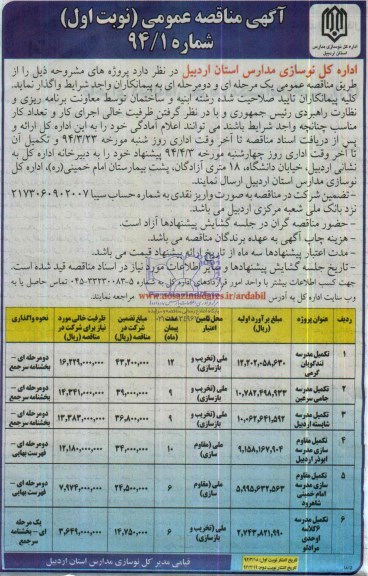 آگهی مناقصه عمومی (نوبت اول)
شماره ۹۴/۱
اداره کل نوسازی مدارس
استان اردبیل
اداره کل نوسازی مدارس استان اردبیل در نظر دارد پروژه های مشروحه ذیل را از
طریق مناقصه عمومی یک مرحله ای و دومرحله ای به پیمانکاران واجد شرایط واگذار نماید.
کلیه پیمانکاران تایید صلاحیت شده رشته ابنیه و ساختمان توسط معاونت برنامه ریزی و
نظارت راهبردی رئیس جمهوری و با در نظر گرفتن ظرفیت خالی اجرای کار و تعداد کار
مناسب چنانچه واجد شرایط باشند می توانند اعلام آمادگی خود را به این اداره کل ارائه و
پس از دریافت اسناد مناقصه تا آخر وقت اداری روز شنبه مورخه ۹۴/۳/۲۳ و تکمیل آن
تا آخر وقت اداری روز چهارشنبه مورخه ۹۴/۴/۳ پیشنهاد خود را به دبیرخانه اداره کل به
نشانی اردبیل، خیابان دانشگاه، ۱۸ متری آزادگان، پشت بیمارستان امام خمینی(ره)، اداره کل
نوسازی مدارس استان اردبیل ارسال نمایند.
- تضمین شرکت در مناقصه به صورت واریز نقدی به شماره حساب سیبا ۲۱۷۳۰۶۰۹۰۲۰۰۷
نزد بانک ملی شعبه مرکزی اردبیل می باشد.
- حضور مناقصه گران در جلسه گشایش پیشنهادها آزاد است.
- هزینه چاپ آگهی به عهده برندگان مناقصه می باشد.
- مدت اعتبار پیشنهادها سه ماه از تاریخ ارائه پیشنهاد قیمت می باشد.
- تاریخ جلسه گشایش پیشنهادها و سایر اطلاعات مورد نیاز در اسناد مناقصه قید شده است.
جهت کسب اطلاعات بیشتر با واحد امور قراردادهای اداری به شماره ۵-۰۴۵-۳۳۲۳۰۰۸۳ تماس حاصل یا به
وب سایت اداره کل به آدرس www.nosazimadares.ir/ardabil مراجعه نمایند.
ردیف عنوان پروژه مبلغ برآورد اولیه (ریال) محل تامین اعتبار مدت پیمان (ماه) مبلغ تضمین شرکت در مناقصه (ریال) ظرفیت خالی مورد نیاز برای شرکت در مناقصه (ریال) نحوه واگذاری
۱ تکمیل مدرسه تندگویان گرمی ۱۲,۲۰۲,۰۵۸,۶۳۰ ملی (تخریب و بازسازی) ۱۲ ۴۳,۲۰۰,۰۰۰ ۱۶,۲۲۹,۰۰۰,۰۰۰ دومرحله ای - بخشنامه سرجمع
۲ تکمیل مدرسه جامی سرعین ۱۰,۷۸۲,۴۹۸,۹۳۳ ملی (تخریب و بازسازی) ۹ ۳۹,۰۰۰,۰۰۰ ۱۴,۳۴۱,۰۰۰,۰۰۰ دومرحله ای - بخشنامه سرجمع
۳ تکمیل مدرسه شایسته اردبیل ۱۰,۰۶۲,۶۴۱,۵۹۲ ملی (تخریب و بازسازی) ۹ ۳۶,۸۰۰,۰۰۰ ۱۳,۳۸۳,۰۰۰,۰۰۰ دومرحله ای - بخشنامه سرجمع
۴ تکمیل مقاوم سازی مدرسه ابوذر اردبیل ۹,۱۵۸,۱۶۷,۹۰۴ ملی (مقاوم سازی) ۱۰ ۳۴,۰۰۰,۰۰۰ ۱۲,۱۸۰,۰۰۰,۰۰۰ دومرحله ای - فهرست بهایی
۵ تکمیل مقاوم سازی مدرسه امام خمینی شاهرود ۵,۹۹۵,۶۳۲,۵۶۳ ملی (مقاوم سازی) ۶ ۲۴,۵۰۰,۰۰۰ ۷,۹۷۴,۰۰۰,۰۰۰ دومرحله ای - فهرست بهایی
۶ تکمیل مدرسه ۶کلاسه اوحدی مرادلو ۲,۷۴۳,۸۲۱,۹۹۰ ملی (تخریب و بازسازی) ۶ ۱۴,۷۵۰,۰۰۰ ۳,۶۴۹,۰۰۰,۰۰۰ یک مرحله ای - بخشنامه سرجمع
قیامی مدیر کل نوسازی مدارس استان اردبیل